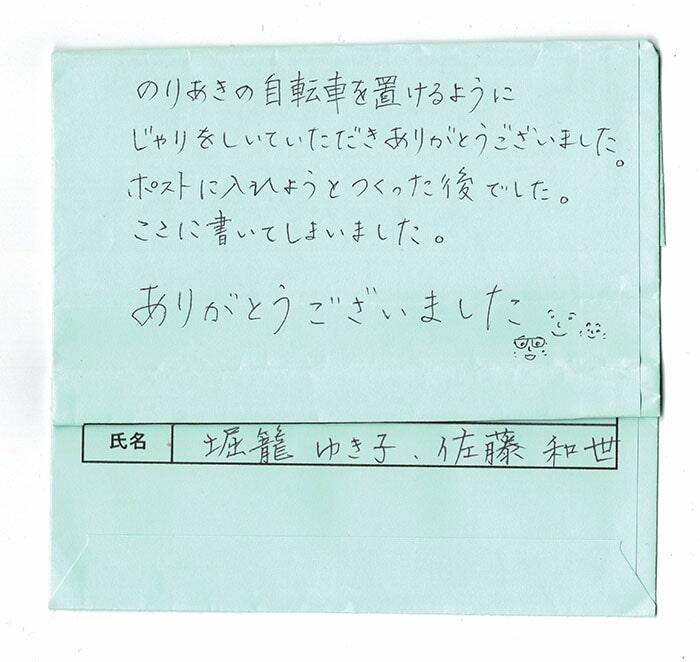 のりあきの自転車を置けるように
じゃりをしいていただきありがとうございました。
ポストに入れようとつくった後でした。
ここに書いてしまいました。
ありがとうございました
氏名 堀籠 ゆき子、佐藤 和世